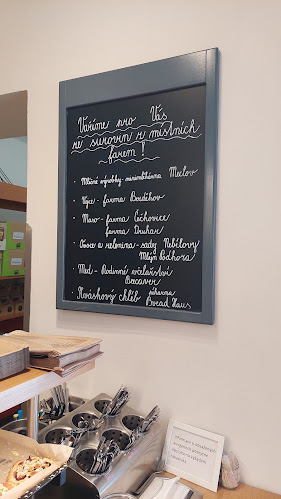 Vaříme pro Vás
ze surovin z místních
farem!
Mléčné výrobky - minimlékárna Meclov
Vejce - farma
Maso - farma Čichovice
farma Druhaz
Ovoce a zelenina - sady Nebílovy
Mlýn Podhora
Med - Rodinné včelařství
Beecaver
Kváskový chléb pekárna
Bread Haus
Informace o